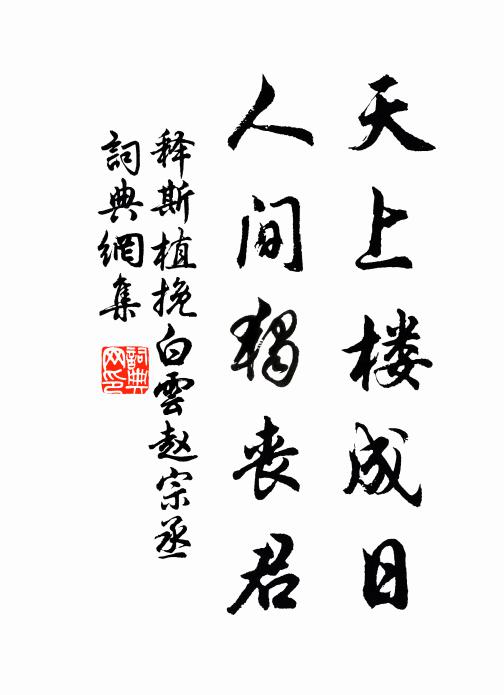 天上楼成日
人间獨丧君
释斯植挽白雲赵宗丞
詞典網集
詞典网印